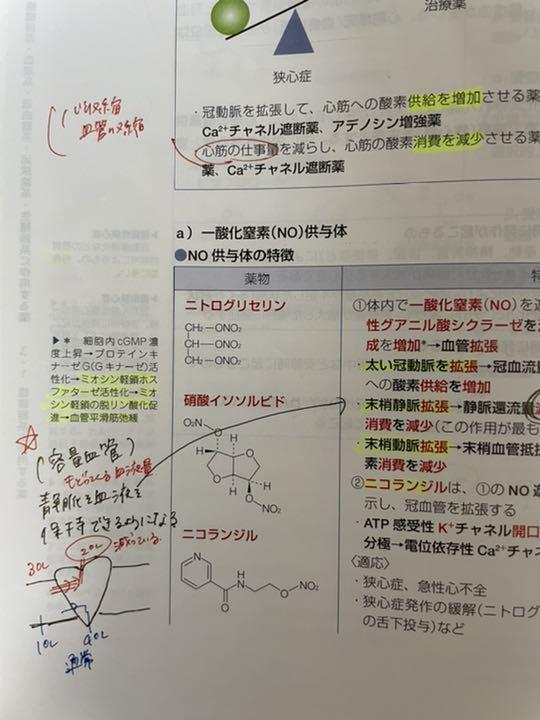 治療薬
狭心症
・冠動脈を拡張して、心筋への酸素供給を増加させる薬
Ca²⁺チャネル遮断薬、アデノシン増強薬
心筋の仕事量を減らし、心筋の酸素消費を減少させる薬
薬、Ca²⁺チャネル遮断薬
心収縮
血管の収縮
a）一酸化窒素（NO）供与体
●NO 供与体の特徴
薬物
特
ニトログリセリン
CH₂―ONO₂
CH―ONO₂
CH₂―ONO₂
硝酸イソソルビド
O₂N
O
H
O
O
H
O
NO₂
ニコランジル
N
O
H
N
O
NO₂
①体内で一酸化窒素（NO）を遊
性グアニル酸シクラーゼを
成を増加*→血管拡張
・太い冠動脈を拡張→冠血流
への酸素供給を増加
・末梢静脈拡張→静脈還流量
消費を減少（この作用が最も
・末梢動脈拡張→末梢血管抵
素消費を減少
②ニコランジルは、①の NO 遊
示し、冠血管を拡張する
・ATP 感受性 K⁺チャネル開口
分極→電位依存性 Ca²⁺チャ
〈適応〉
・狭心症、急性心不全
・狭心症発作の緩解（ニトログ
の舌下投与）など
▶＊ 細胞内cGMP濃
度上昇→プロテインキ
ナーゼG（Gキナーゼ）活
性化→ミオシン軽鎖ホス
ファターゼ活性化→ミオ
シン軽鎖の脱リン酸化促
進→血管平滑筋弛緩
（容量血管）
もどってくる血液量
静脈化を血液を
保持できるようになる
20L
減っている.
30L
10L
40L
通常